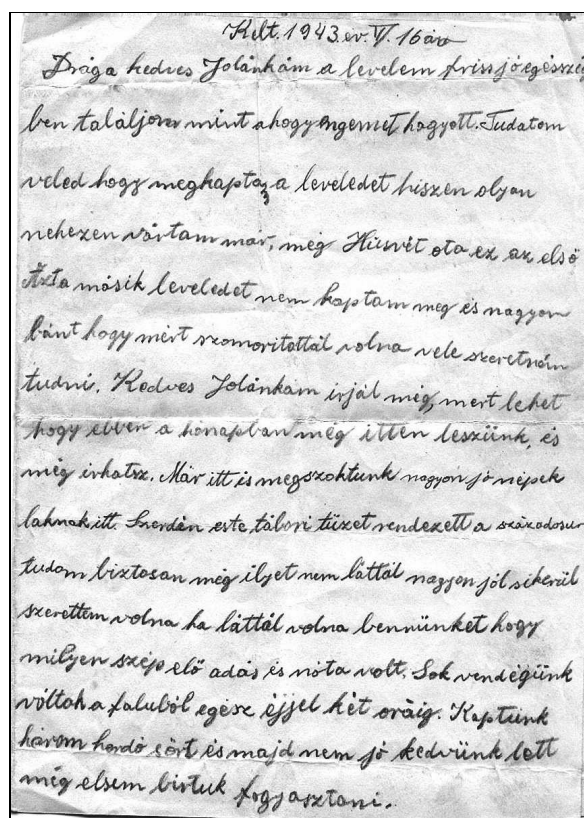 Kelt. 1943. év. VI. 16 án
Drága kedves Jolánkám a levelem friss jó egésszé
ben találjon mint ahogy engemet hagyott. Tudatom
veled hogy megkaptam a leveledet hiszen olyan
nehezen vártam már, még Húsvét ota ez az első
Azta másik leveledet nem kaptam meg és nagyon
bánt hogy mért szomoritottál volna vele szeretném
tudni. Kedves Jolánkám irjál még, mert lehet
hogy ebben a hónapban még itten leszünk, és
még irhatsz. Már itt is megszoktunk nagyon jó népek
laknak itt. Szerdán este tábori tüzet rendezett a századosur
tudom biztosan még ilyet nem láttál nagyon jól sikerül
szerettem volna ha láttál volna bennünket hogy
milyen szép elő adás és nóta volt. Sok vendégünk
vóltak a faluból egész éjjel két oráig. Kaptunk
három hordó sört és majd nem jó kedvünk lett
még elsem birtuk fogyasztani.